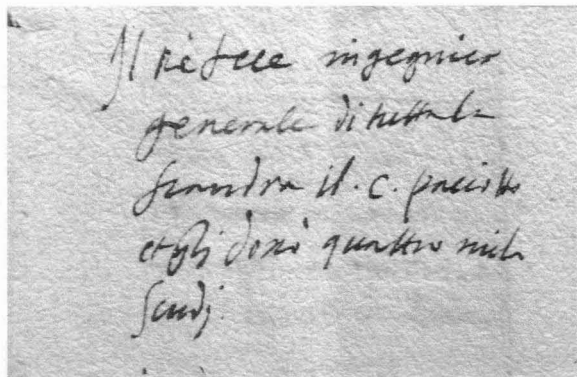 Il rè fece ingegnier
generale di tutta la
fiandra il .c. paciotto
et gli donò quattro mila
scudj.